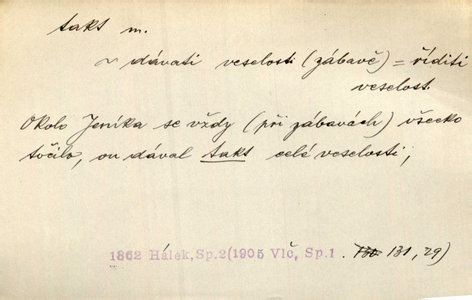 takt m.
~ dávati veselosti (zábavě) = říditi
veselost
Okolo Jeníka se vždy (při zábavách) všecko
točilo, on dával takt celé veselosti,
1862 Hálek, Sp.2(1905 Vlč, Sp.1. 130 131, 29)